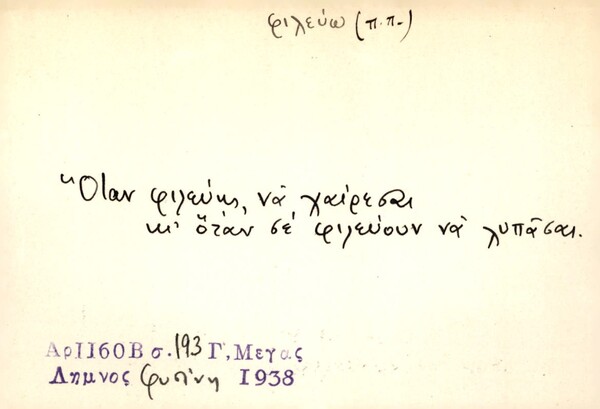 φιλεύω (π.π.)
Ὅταν φιλεύῃς, νὰ χαίρεσαι
κι' ὅταν σέ φιλεύουν νὰ λυπᾶσαι.
Αρ1160Β σ. 193 Γ, Μεγας
Λημνος Φυσίνη 1938